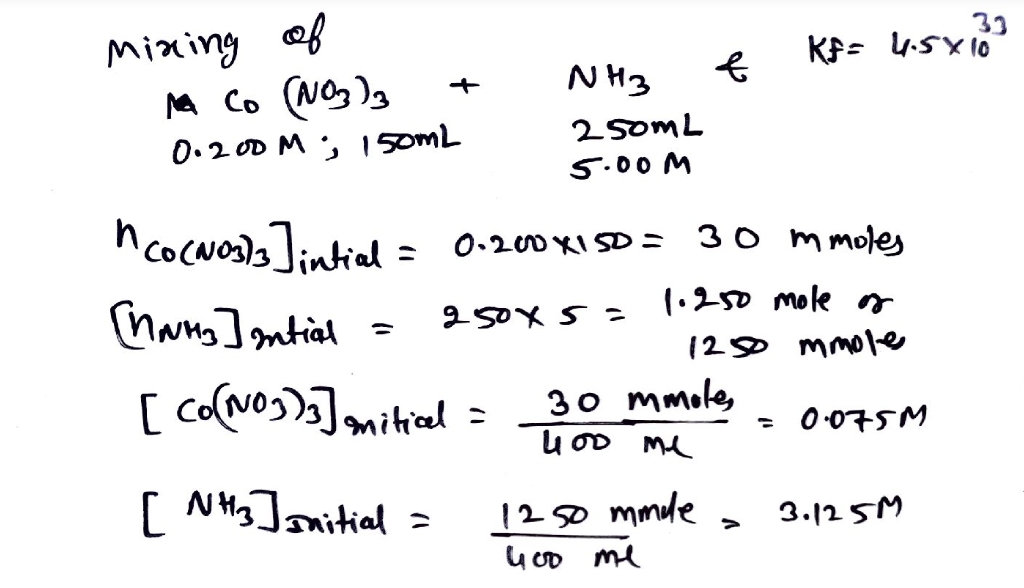 Mixing of
Co (NO3)3 + NH3 & Kf = 4.5 x 10^33
0.200 M ; 150mL 250mL
5.00 M
nCo(NO3)3]intial = 0.200 x 150 = 30 mmoles
[nNH3]intial = 250 x 5 = 1.250 mole or
1250 mmole
[Co(NO3)3]initial = 30 mmoles / 400 ml = 0.075M
[NH3]initial = 1250 mmole / 400 ml = 3.125M